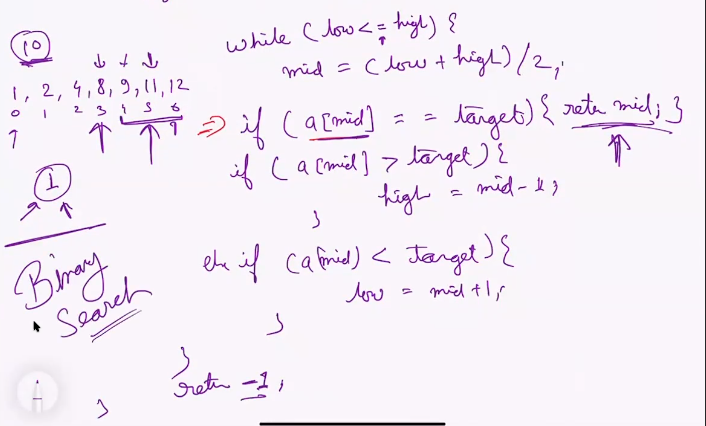 10
1, 2, 4, 8, 9, 11, 12
0 1 2 3 4 5 6
9
1
Binary
Search
while (low <= high) {
mid = (low + high) / 2;
=> if (a[mid] == target) { return mid; }
if (a[mid] > target) {
high = mid - 1;
}
else if (a[mid] < target) {
low = mid + 1;
}
}
return -1;
}